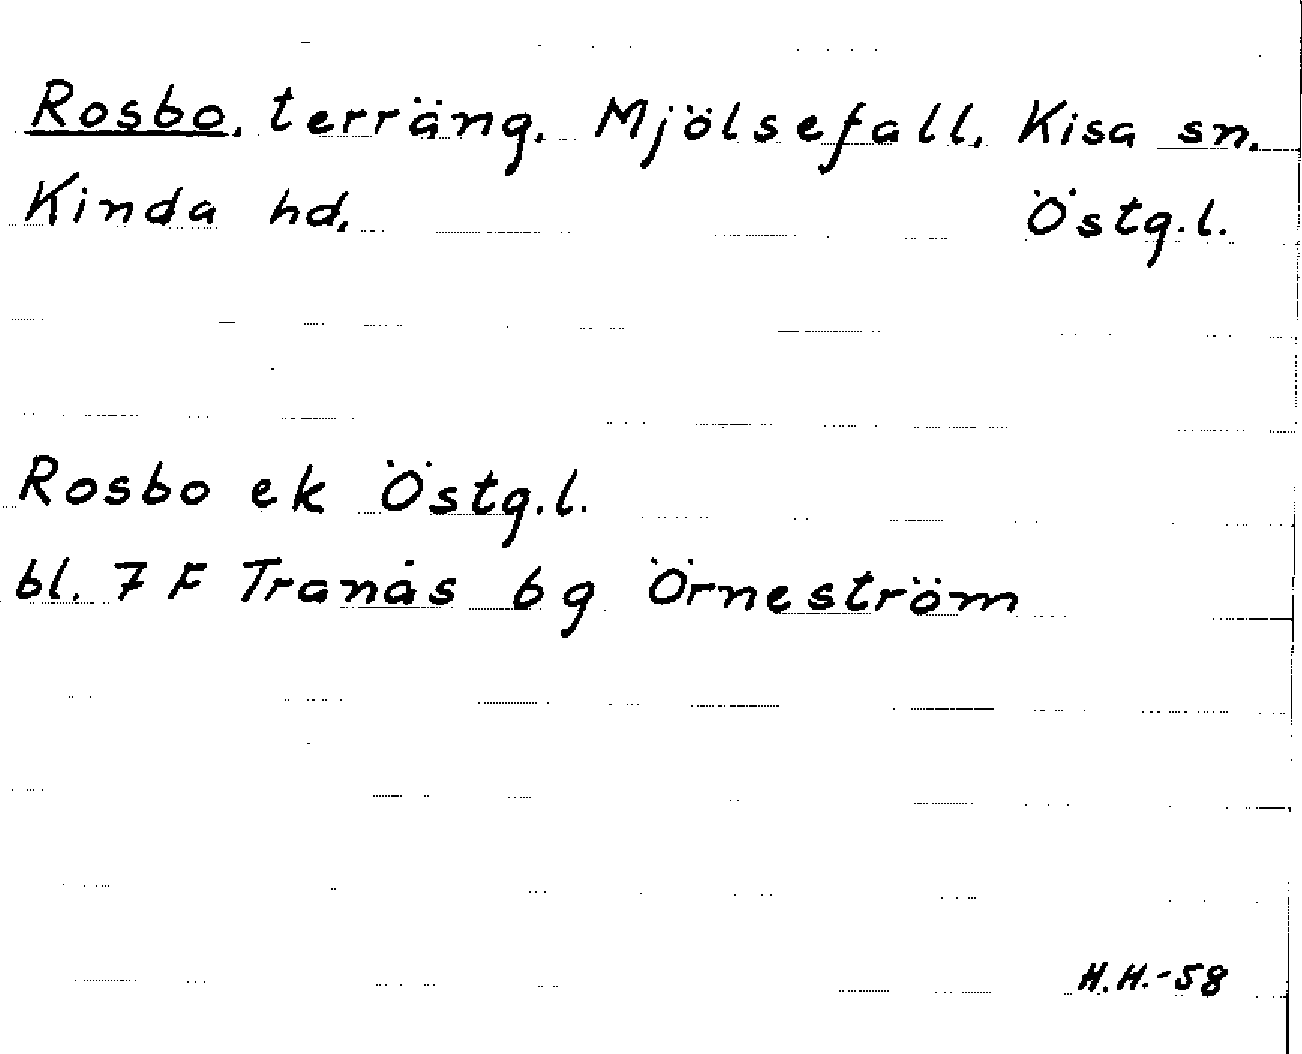 Rosbo, terräng. Mjölsefall, Kisa sn.
Kinda hd. Östg.l.
Rosbo ek Östg.l.
bl. 7 F Tranås 6g Örneström
H.H.-58